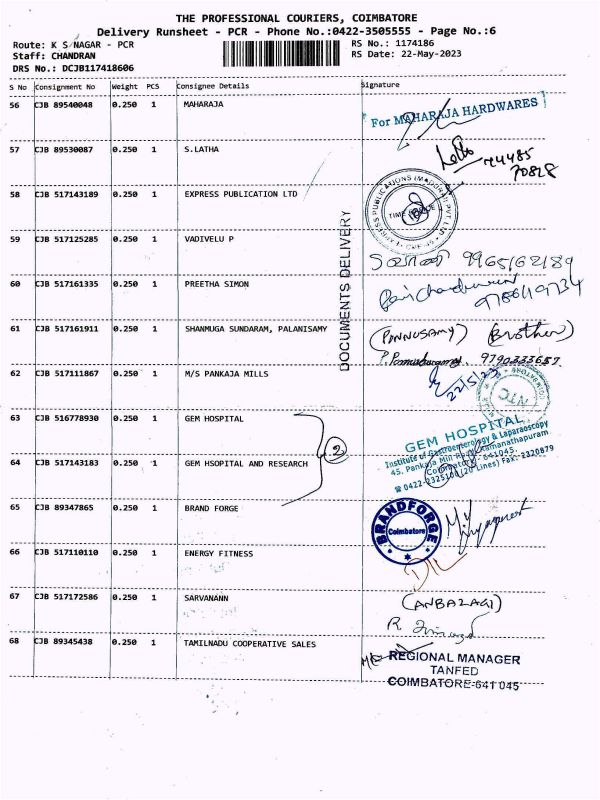 THE PROFESSIONAL COURIERS, COIMBATORE
Delivery Runsheet - PCR - Phone No.:0422-3505555 - Page No.:6
Route: K S NAGAR - PCR
RS No.: 1174186
Staff: CHANDRAN
RS Date: 22-May-2023
DRS No.: DCJB117418606
S No Consignment No Weight PCS Consignee Details Signature
56 CJB 89540048 0.250 1 MAHARAJA
For MAHARAJA HARDWARES
57 CJB 89530087 0.250 1 S.LATHA
Latha 74485
70828
58 CJB 517143189 0.250 1 EXPRESS PUBLICATION LTD
EXPRESS PUBLICATIONS (MADURAI) PVT LTD
TIME OFFICE
DOCUMENTS DELIVERY
59 CJB 517125285 0.250 1 VADIVELU P
9965162189
60 CJB 517161335 0.250 1 PREETHA SIMON
61 CJB 517161911 0.250 1 SHANMUGA SUNDARAM, PALANISAMY
(PONNUSAMY) (Brother)
9790333657
62 CJB 517111867 0.250 1 M/S PANKAJA MILLS
22/5/23
NTC
63 CJB 516778930 0.250 1 GEM HOSPITAL
2
GEM HOSPITAL
Institute of Gastroenterology & Laparoscopy
45, Pankaja Mill Road, Ramanathapuram
Coimbatore - 641045.
64 CJB 517143183 0.250 1 GEM HSOPITAL AND RESEARCH
☎ 0422-2325100 (20 Lines) Fax: 2320879
65 CJB 89347865 0.250 1 BRAND FORGE
BRANDFORGE
Coimbatore
66 CJB 517110110 0.250 1 ENERGY FITNESS
67 CJB 517172586 0.250 1 SARVANANN
(ANBAZAGI)
68 CJB 89345438 0.250 1 TAMILNADU COOPERATIVE SALES
REGIONAL MANAGER
TANFED
COIMBATORE-641 045